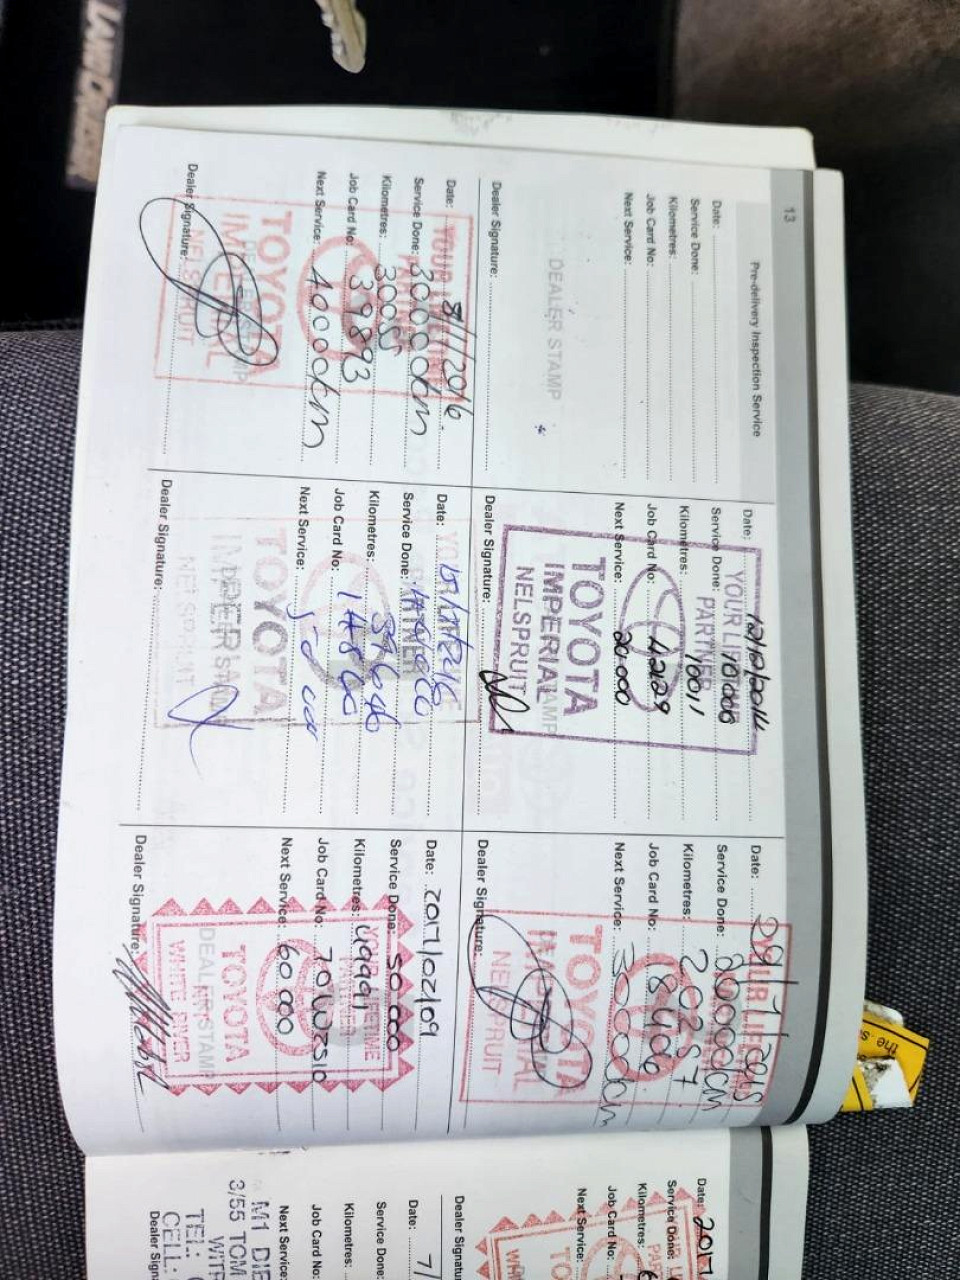 LAND CRUISER
13
Pre-delivery Inspection Service
Date:
Service Done:
Kilometres:
Job Card No:
Next Service:
DEALER STAMP
Dealer Signature:
Date: 12/12/2014
Service Done: 10 000
Kilometres: 10011
Job Card No: 42129
Next Service: 20.000
YOUR LIFETIME
PARTNER
TOYOTA
IMPERIAL
NELSPRUIT
Dealer Signature:
Date: 29/7/2015
Service Done: 20000km
Kilometres: 20287
Job Card No: 18406
Next Service: 30000km
TOYOTA
IMPERIAL
NELSPRUIT
Dealer Signature:
Date: 8/1/2016.
Service Done: 30000km
Kilometres: 30085
Job Card No: 39893
Next Service: 40000km
TOYOTA
IMPERIAL
NELSPRUIT
DEALER STAMP
Dealer Signature:
Date:
Service Done:
Kilometres: 39646
Job Card No:
Next Service:
TOYOTA
IMPERIAL
NELSPRUIT
Dealer Signature:
Date: 2017/02/09
Service Done: 50.000
Kilometres: 49991
Job Card No:
Next Service: 60.000
YOUR LIFETIME
PARTNER
DEALER STAMP
TOYOTA
WHITE RIVER
Dealer Signature:
Date: 2017
Service Done:
Kilometres:
Job Card No:
Next Service:
Dealer Signatu
Date: 7/
Service Done:
Kilometres:
Job Card No:
Next Service:
M1 DIE
3/55 TOM
WITR
TEL:
CELL:
Dealer Sign
the s